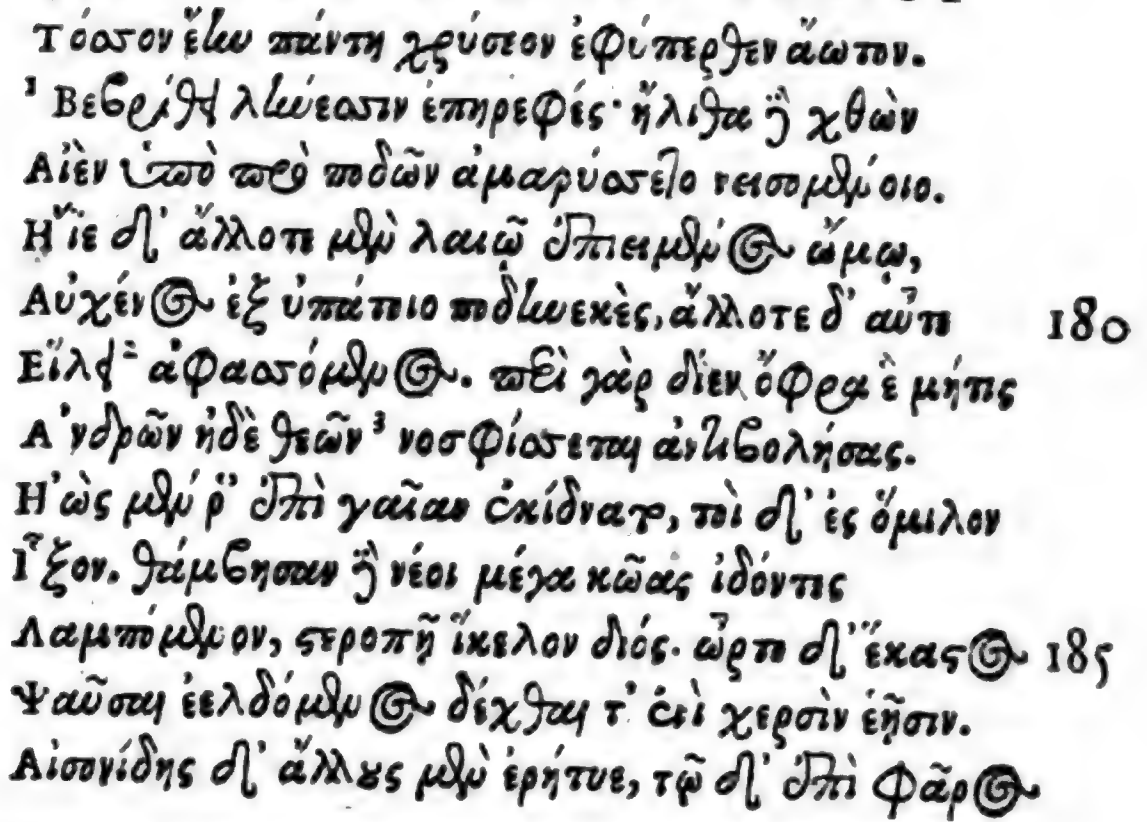 Τόσσον ἔην πάντη χρύσεον ἐφύπερθεν ἄωτον.
¹ Βεβρίθει λήνεσσιν ἐπηρεφές· ἤλιθα δὲ χθὼν
Αἰὲν ὑπὸ πρὸ ποδῶν ἀμαρύσσετο νεισομένοιο.
Ἤϊε δ' ἄλλοτε μὲν λαιῷ ἐπιειμένος ὤμῳ,
Αὐχένος ἐξ ὑπάτοιο ποδηνεκὲς, ἄλλοτε δ' αὖτε 180
Εἴλει ² ἀφασσόμενος. περὶ γὰρ δίεν ὄφρα ἓ μήτις
Ἀνδρῶν ἠδὲ θεῶν ³ νοσφίσσεται ἀντιβολήσας.
Ἠὼς μέν ῥ' ἐπὶ γαῖαν ἐκίδνατο, τοὶ δ' ἐς ὅμιλον
Ἷξον. θάμβησαν δὲ νέοι μέγα κῶας ἰδόντες
Λαμπόμενον, στεροπῇ ἴκελον διός. ὦρτο δ' ἕκαστος 185
Ψαῦσαι ἐελδόμενος δέχθαι τ' ἐνὶ χερσὶν ἑῇσιν.
Αἰσονίδης δ' ἄλλους μὲν ἐρήτυε, τῷ δ' ἐπὶ φᾶρος